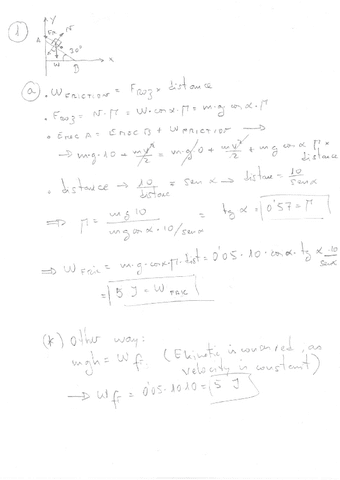 1
y
FR
N
A
30°
W
B
x
a) · W FRICTION = F ROZ × distance
· F ROZ = N · μ = W · cos α · μ = m · g cos α · μ
· E mec A = E mec B + W FRICTION →
→ m·g·10 + mv²/2 = m·g·0 + mv²/2 + m g cos α μ × distance
· distance → 10/distance = sen α → distance = 10/sen α
⇒ μ = m g 10 / m g cos α · 10/sen α = tg α = 0'57 = μ
⇒ W FRIC = m·g·cos α·μ·dist = 0'05 · 10 · cos α · tg α · 10/sen α
= 5 J = W FRIC
(*) Other way:
mgh = W fr. (E kinetic is conserved, as
velocity is constant)
→ W fr = 0'05·10·10 = 5 J